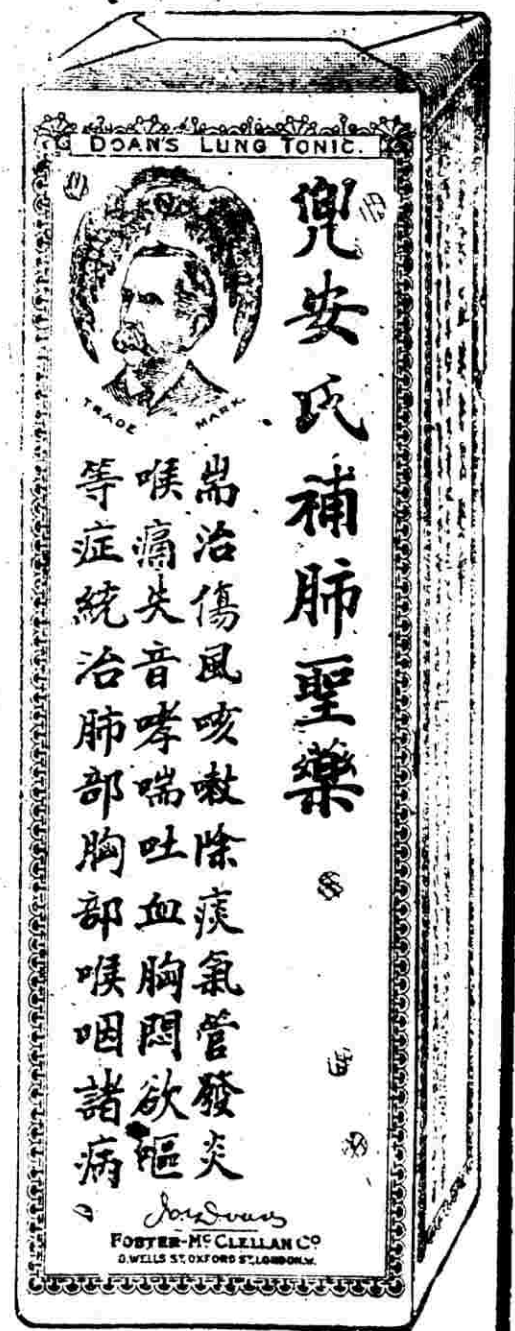 DOAN'S LUNG TONIC.
TRADE MARK.
兜安氏補肺聖藥
耑治傷風咳嗽除痰氣管發炎
喉痛失音哮喘吐血胸悶欲嘔
等症統治肺部胸部喉咽諸病
FOSTER-MCCLELLAN CO
8,WELLS ST. OXFORD ST., LONDON.W.